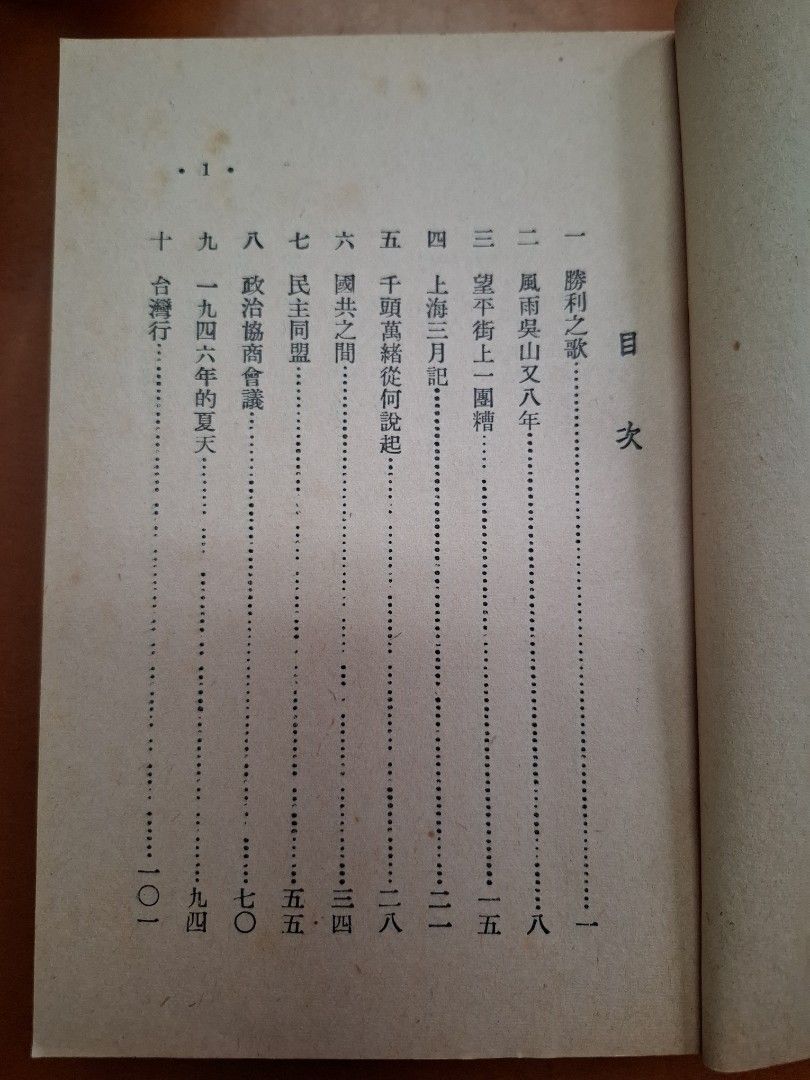 目次
一 勝利之歌……一
二 風雨吳山又八年……八
三 望平街上一團糟……一五
四 上海三月記……二一
五 千頭萬緒從何說起……二八
六 國共之間……三四
七 民主同盟……五五
八 政治協商會議……七〇
九 一九四六年的夏天……九四
十 台灣行……一〇一
• 1 •